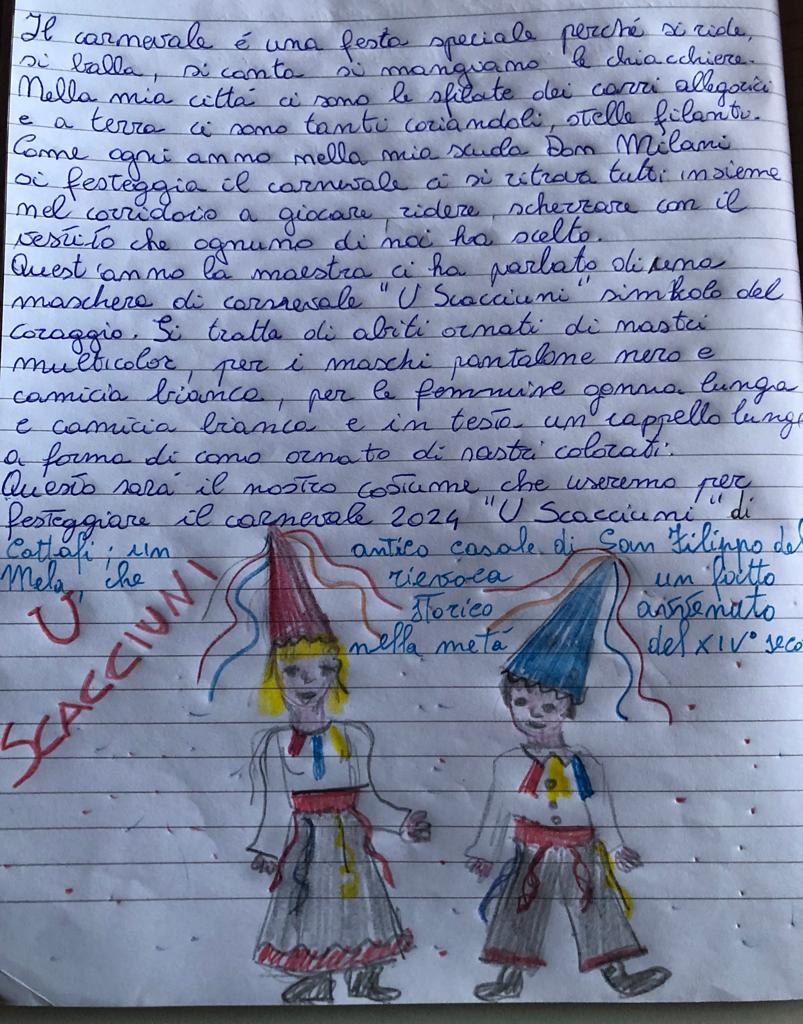 Il carnevale é una festa speciale perché si ride,
si balla, si canta si manguano le chiacchiere.
Nella mia cittá ci sono le sfilate dei carri allegorici
e a terra ci sono tanti coriandoli, stelle filanti.
Come ogni anno nella mia scuola Don Milani
si festeggia il carnevale ci si ritrova tutti insieme
nel corridoio a giocare, ridere, scherzare con il
vestito che ognuno di noi ha scelto.
Quest'anno la maestra ci ha parlato di una
maschera di carnevale "U Scacciuni" simbolo del
coraggio. Si tratta di abiti ornati di nastri
multicolor, per i maschi pantalone nero e
camicia bianca, per le femmine gonna lunga
e camicia bianca e in testa un cappello lungo
a forma di cono ornato di nastri colorati.
Questo sará il nostro costume che useremo per
festeggiare il carnevale 2024 "U Scacciuni" di
Cattafi; un antico casale di San Filippo del
Mela, che rievoca un fatto
storico avvenuto
nella metá del XIV° seco
U
SCACCIUNI